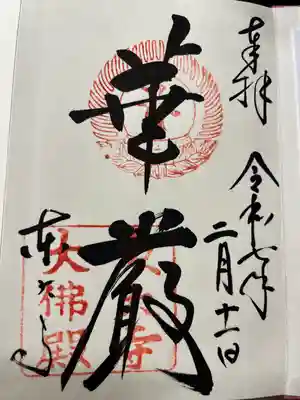 奉拝
令和七年
二月十一日
華厳
東大寺
大佛殿